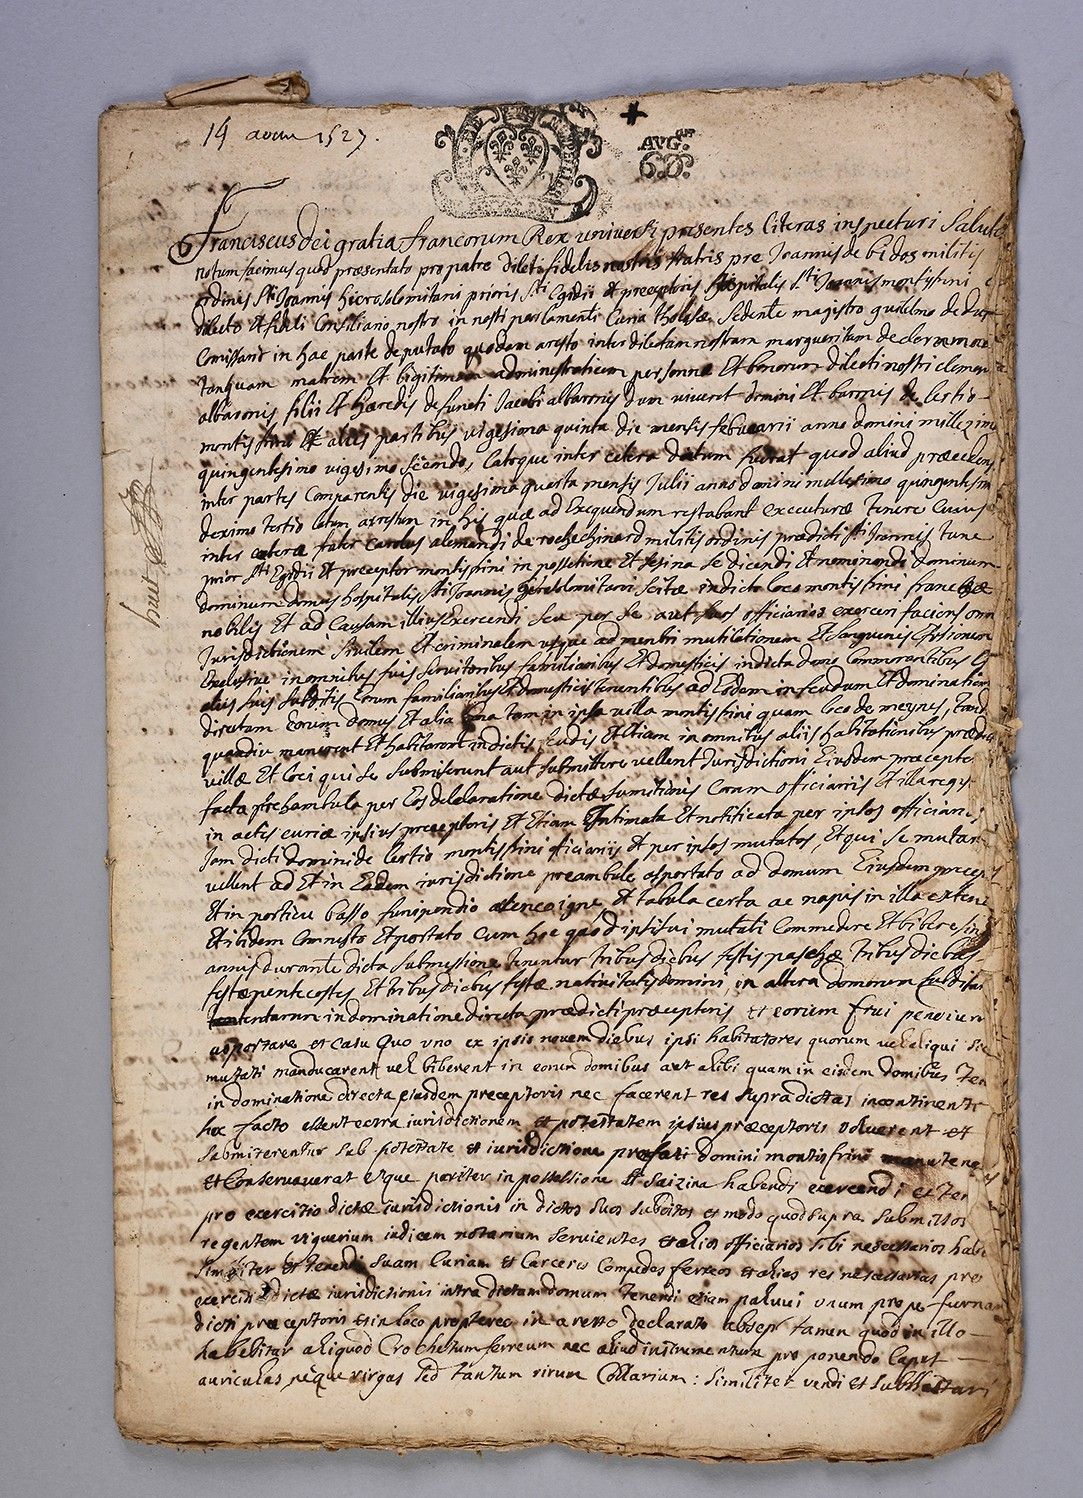 14 aoust 1527.
AVG.on
6.D.
Franciscus dei gratia francorum Rex universis presentes literas inspecturi Salute
notum facimus quod præsentato pro patre dilecti fidelis nostris fratris pre Joannis de bidos militis
ordinis Sti Joannis hierosolomitani prioris Sti Egidii et preceptoris hospitalis Sti Joannis montisfrini
dilecto et fideli Consiliario nostro in nostri parlamenti Curia tholosæ Sedente magistro guilelmo de
Comissario in hac parte deputato quodam aresto inter dilectam nostram margueritam de clermont
tanquam matrem Et legitimam administraticem personnæ Et bonorum dilecti nostri clemen
albaronis filii Et hæredis defuncti Jacobi albaronis dum viveret domini Et baronis de lertio
montisfrini Et aliis partibus vigesima quinta die mensis febuarii anno domini millezimo
quingentesimo vigesimo secundo, Latoque inter cetera dictum fuerat quod aliud præcedens
inter partes Comparentes die vigesima quarta mensis Julii anno domini millesimo quingentisim
decimo tertio latum arrestum in his quæ ad Exequendum restabant executuræ tenere Cuius
inter cæteræ frater Carolus alemandi de rochechinard militis ordinis prædicti Sti Joannis tunc
prior Sti Egidii Et preceptor montisfrini in possetione Et sesina se dicendi Et nominandi dominum
dominum domus hospitalis Sti Joannis hierosolomitani Scitæ in dicto loco montisfrini francæ
nobilis Et ad Causam illius Exercendi Seu per se aut suos officiarios exerceri faciens omn
Jurisdictionem Sivilem Et criminalem usque ad membri mutilationem Et Sanguinis Efusionem
Exclusive in omnibus suis Servitoribus familiaribus Et domesticis in dicta domo Commorantibus
aliis suis subditis Eorum familiaribus Et domesticis tenentibus ad Eodem in feudum Et dominatiom
directam Eorum domus Et alia bona tam in ipsa villa montisfrini quam loco de meynes,
quandiu manserent Et habitarent in dictis feudis Et Etiam in omnibus aliis habitationibus prædic
villæ Et loci qui se submiserunt aut submittere vellent Jurisdictioni Eiusdem præcepto
facta prehambula per Eos delelaratione dictæ sumitionis Coram officiariis Et illa regis
in actis curiæ ipsius preceptoris Et Etiam Intimata Et notificata per ipsos officiarii
Jam dicti domini de lertio montisfrini officiariis Et per ipsos mutatos, Et qui se mutare
vellent ad Et in Eadem iurisdictione preambule asportato ad domum Eiusdem precept
Et in porticu basso Et tabula certa ac napis in illa extens
Et ibidem Comesto Et portato Cum hoc quod ipsi sui mutati Commedere Et bibere sin
annis durante dicta Submessione tenentur tribus diebus festis paschæ tribus diebus
festæ pentecostes Et tribus diebus festæ nativitatis domini, in altera domorum subditas
tententarum in dominatione directa prædicti præceptoris et eorum frui penoium
asportare et casu quo uno ex ipsis novem diebus ipsi habitatores quorum vel aliqui sic
mutati manducarent vel biberent in eorum domibus aut alibi quam in eisdem domibus ten
in dominatione directa eiusdem preceptoris nec facerent res supradictas incontinente
hoc facto essent extra iurisdictionem et potestatem ipsius præceptoris voluerent et
Submiterentur sub potestate et iurisdictione præfati domini montisfrini manutene
et Conservaverat et que pariter in possessione et saizina habendi exercendi et ten
pro exercitio dictæ iurisdictionis in dictos suos subditos et modo quod supra submissos
regentem viguerium iudicem notarium servientes et alios officiarios sibi nescessarios habe
similiter et tenendi suam Curiam et Carceris Compedes ferreos et alias res nesessarias pro
exercitio dictæ iurisdictionis intra dictam domum tenendi etiam paluui unum prope furnum
dicti præceptoris et in loco propterea in aresto declarato absepr tamen quod in illo
habebitur aliquod Crochetum ferreum nec aliud instrumentum pro ponendo Caput
auriculas neque virgas sed tantum virum Collarium : similiter vendi et subhastari